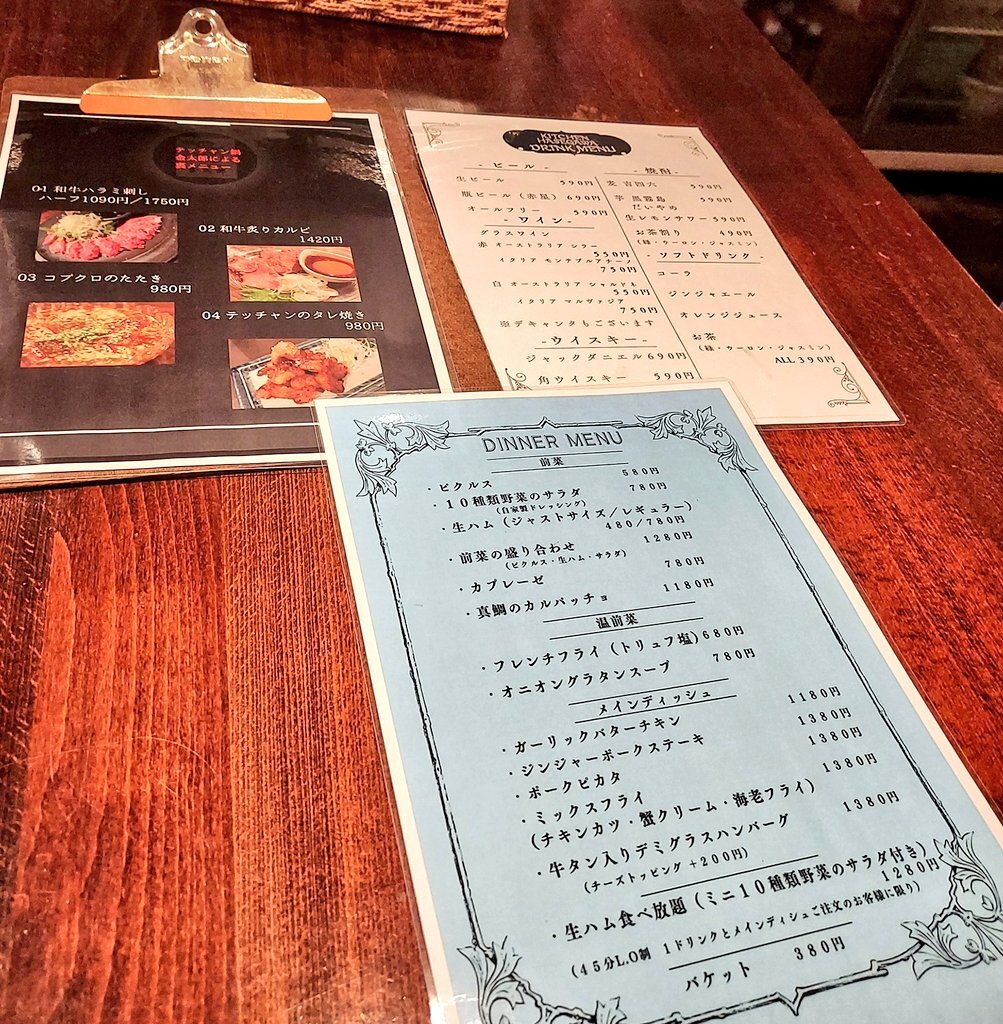 テッチャン鍋
金太郎による
裏メニュー
01 和牛ハラミ刺し
ハーフ1090円／1750円
02 和牛炙りカルビ
1420円
03 コブクロのたたき
980円
04 テッチャンのタレ焼き
980円
KITCHEN
HASEGAWA
DRINK MENU
- ビール -
生ビール 590円
瓶ビール（赤星）690円
オールフリー 590円
- ワイン -
グラスワイン
赤 オーストラリア シラー
550円
イタリア モンテプルアチーノ
750円
白 オーストラリア シャルドネ
550円
イタリア マルヴァジア
750円
※デキャンタもございます
- ウイスキー -
ジャックダニエル 690円
角ウイスキー 590円
- 焼酎 -
麦 吉四六 590円
芋 黒霧島 590円
だいやめ
生レモンサワー 590円
お茶割り 490円
（緑・ウーロン・ジャスミン）
- ソフトドリンク -
コーラ
ジンジャエール
オレンジジュース
お茶
（緑・ウーロン・ジャスミン）
ALL 390円
DINNER MENU
前菜
・ピクルス 580円
・１０種類野菜のサラダ 780円
（自家製ドレッシング）
・生ハム（ジャストサイズ／レギュラー）
480/780円
・前菜の盛り合わせ 1280円
（ピクルス・生ハム・サラダ）
・カプレーゼ 780円
・真鯛のカルパッチョ 1180円
温前菜
・フレンチフライ（トリュフ塩）680円
・オニオングラタンスープ 780円
メインディッシュ
・ガーリックバターチキン 1180円
・ジンジャーポークステーキ 1380円
・ポークピカタ 1380円
・ミックスフライ 1380円
（チキンカツ・蟹クリーム・海老フライ）
・牛タン入りデミグラスハンバーグ 1380円
（チーズトッピング +200円）
・生ハム食べ放題（ミニ１０種類野菜のサラダ付き）
1280円
（４５分L.O制 １ドリンクとメインディシュご注文のお客様に限り）
バケット 380円